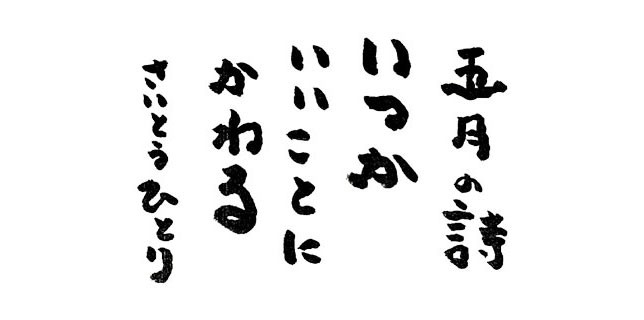 五月の詩
いつか
いいことに
かわる
さいとうひとり